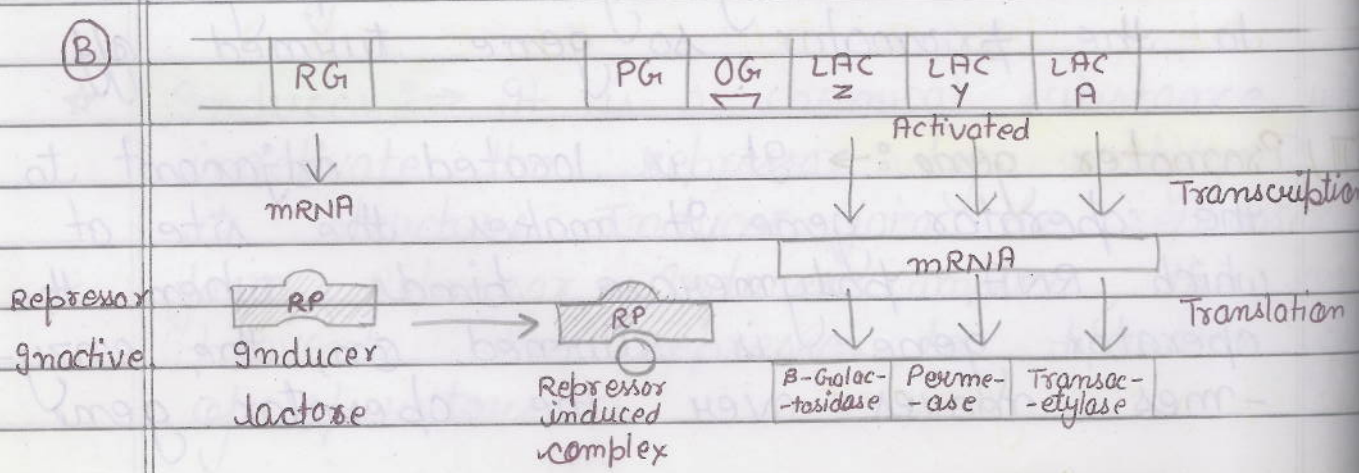 B
RG PG OG LAC Z LAC Y LAC A
Activated
Transcription
mRNA
mRNA
Repressor Inactive
RP
Inducer
lactose
RP
Repressor induced complex
Translation
B-Galac-
-tosidase
Perme-
-ase
Transac-
-etylase